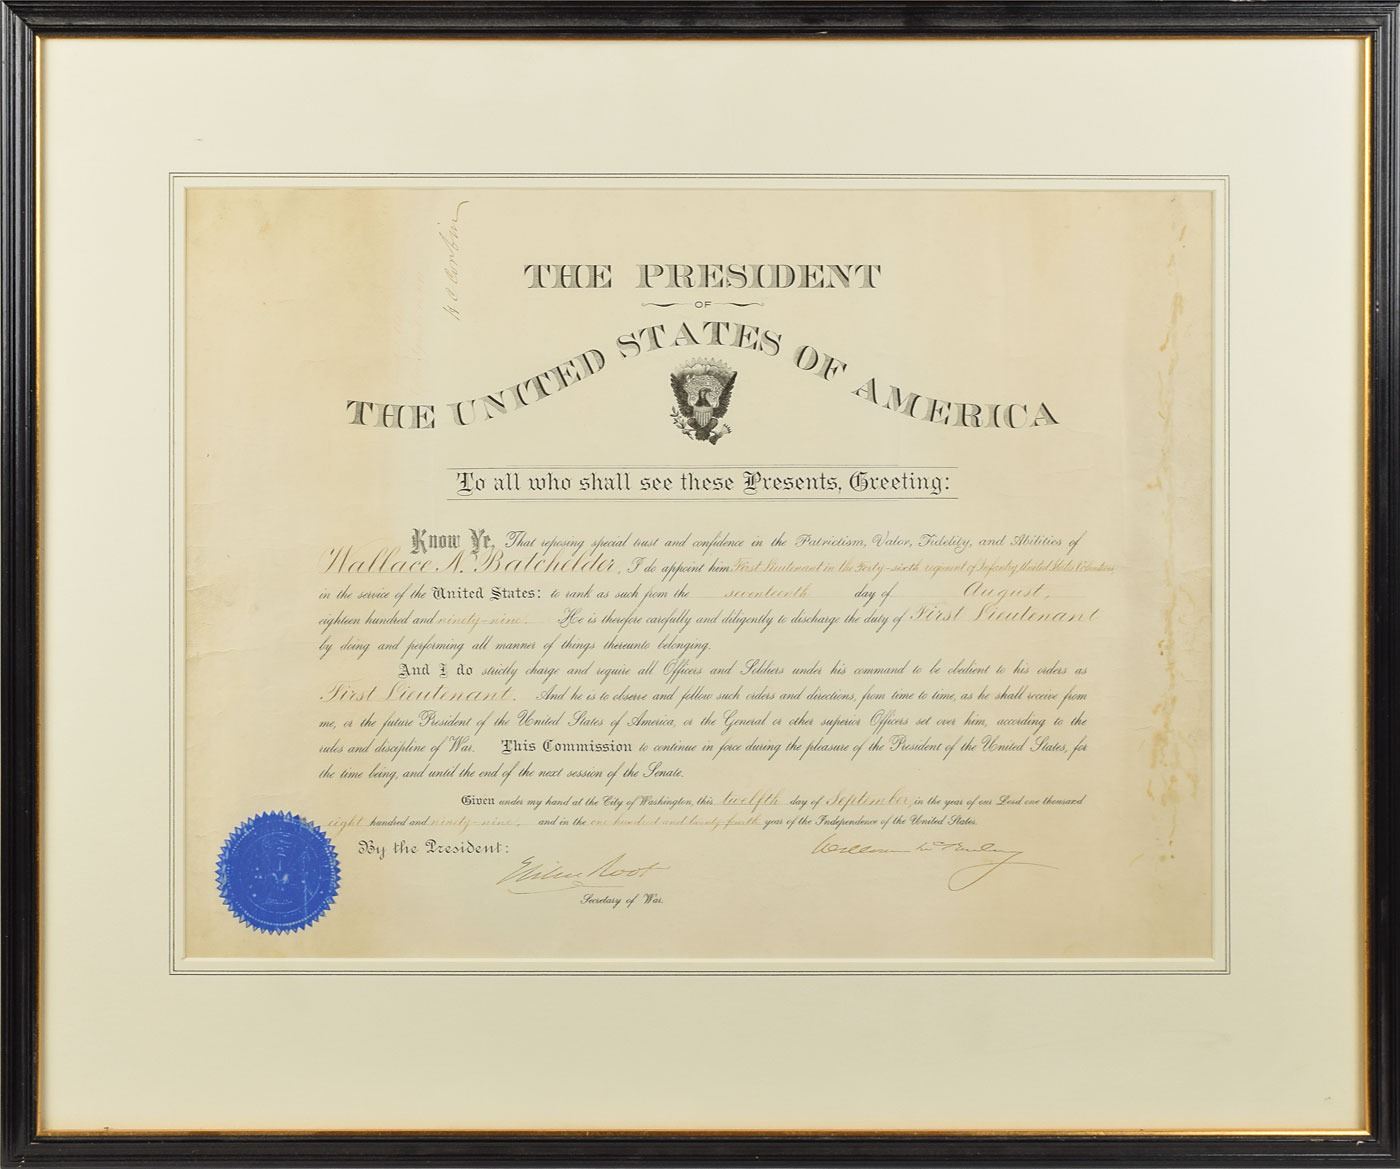 H C Corbin
THE PRESIDENT
OF
THE UNITED STATES OF AMERICA
To all who shall see these Presents, Greeting:
Know Ye, That reposing special trust and confidence in the Patriotism, Valor, Fidelity, and Abilities of
Wallace N. Batchelder, I do appoint him First Lieutenant in the Forty-sixth regiment of Infantry United States Volunteers
in the service of the United States: to rank as such from the seventeenth day of August,
eighteen hundred and ninety-nine. He is therefore carefully and diligently to discharge the duty of First Lieutenant
by doing and performing all manner of things thereunto belonging.
And I do strictly charge and require all Officers and Soldiers under his command to be obedient to his orders as
First Lieutenant. And he is to observe and follow such orders and directions, from time to time, as he shall receive from
me, or the future President of the United States of America, or the General or other superior Officers set over him, according to the
rules and discipline of War. This Commission to continue in force during the pleasure of the President of the United States, for
the time being, and until the end of the next session of the Senate.
Given under my hand at the City of Washington, this twelfth day of September, in the year of our Lord one thousand
eight hundred and ninety-nine, and in the one hundred and twenty-fourth year of the Independence of the United States.
By the President:
William McKinley
Elihu Root
Secretary of War.